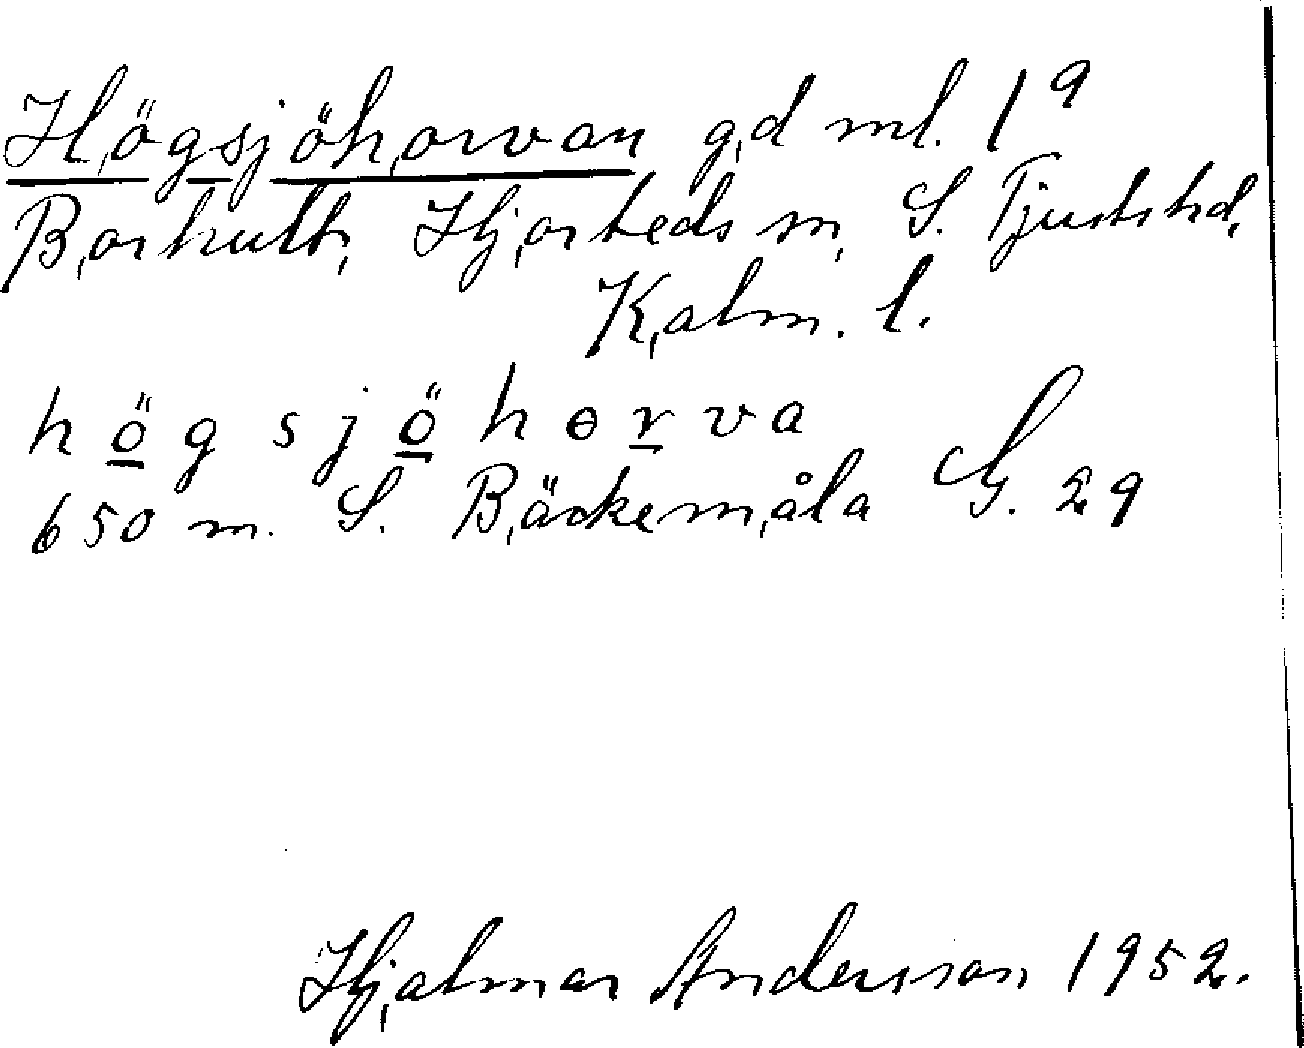 Högsjöhorvan gd ml. 1⁹
Borhult, Hjorteds sn, S. Tjusts hd,
Kalm. l.
högsjöhɵrva
650 m. S. Bäckemåla G. 29
Hjalmar Andersson 1952.